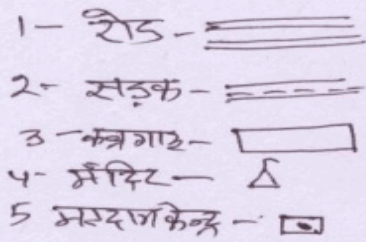 1- रोड -
2- सड़क -
3 - कब्रगाह -
4- मंदिर -
5 मतदान केन्द्र -